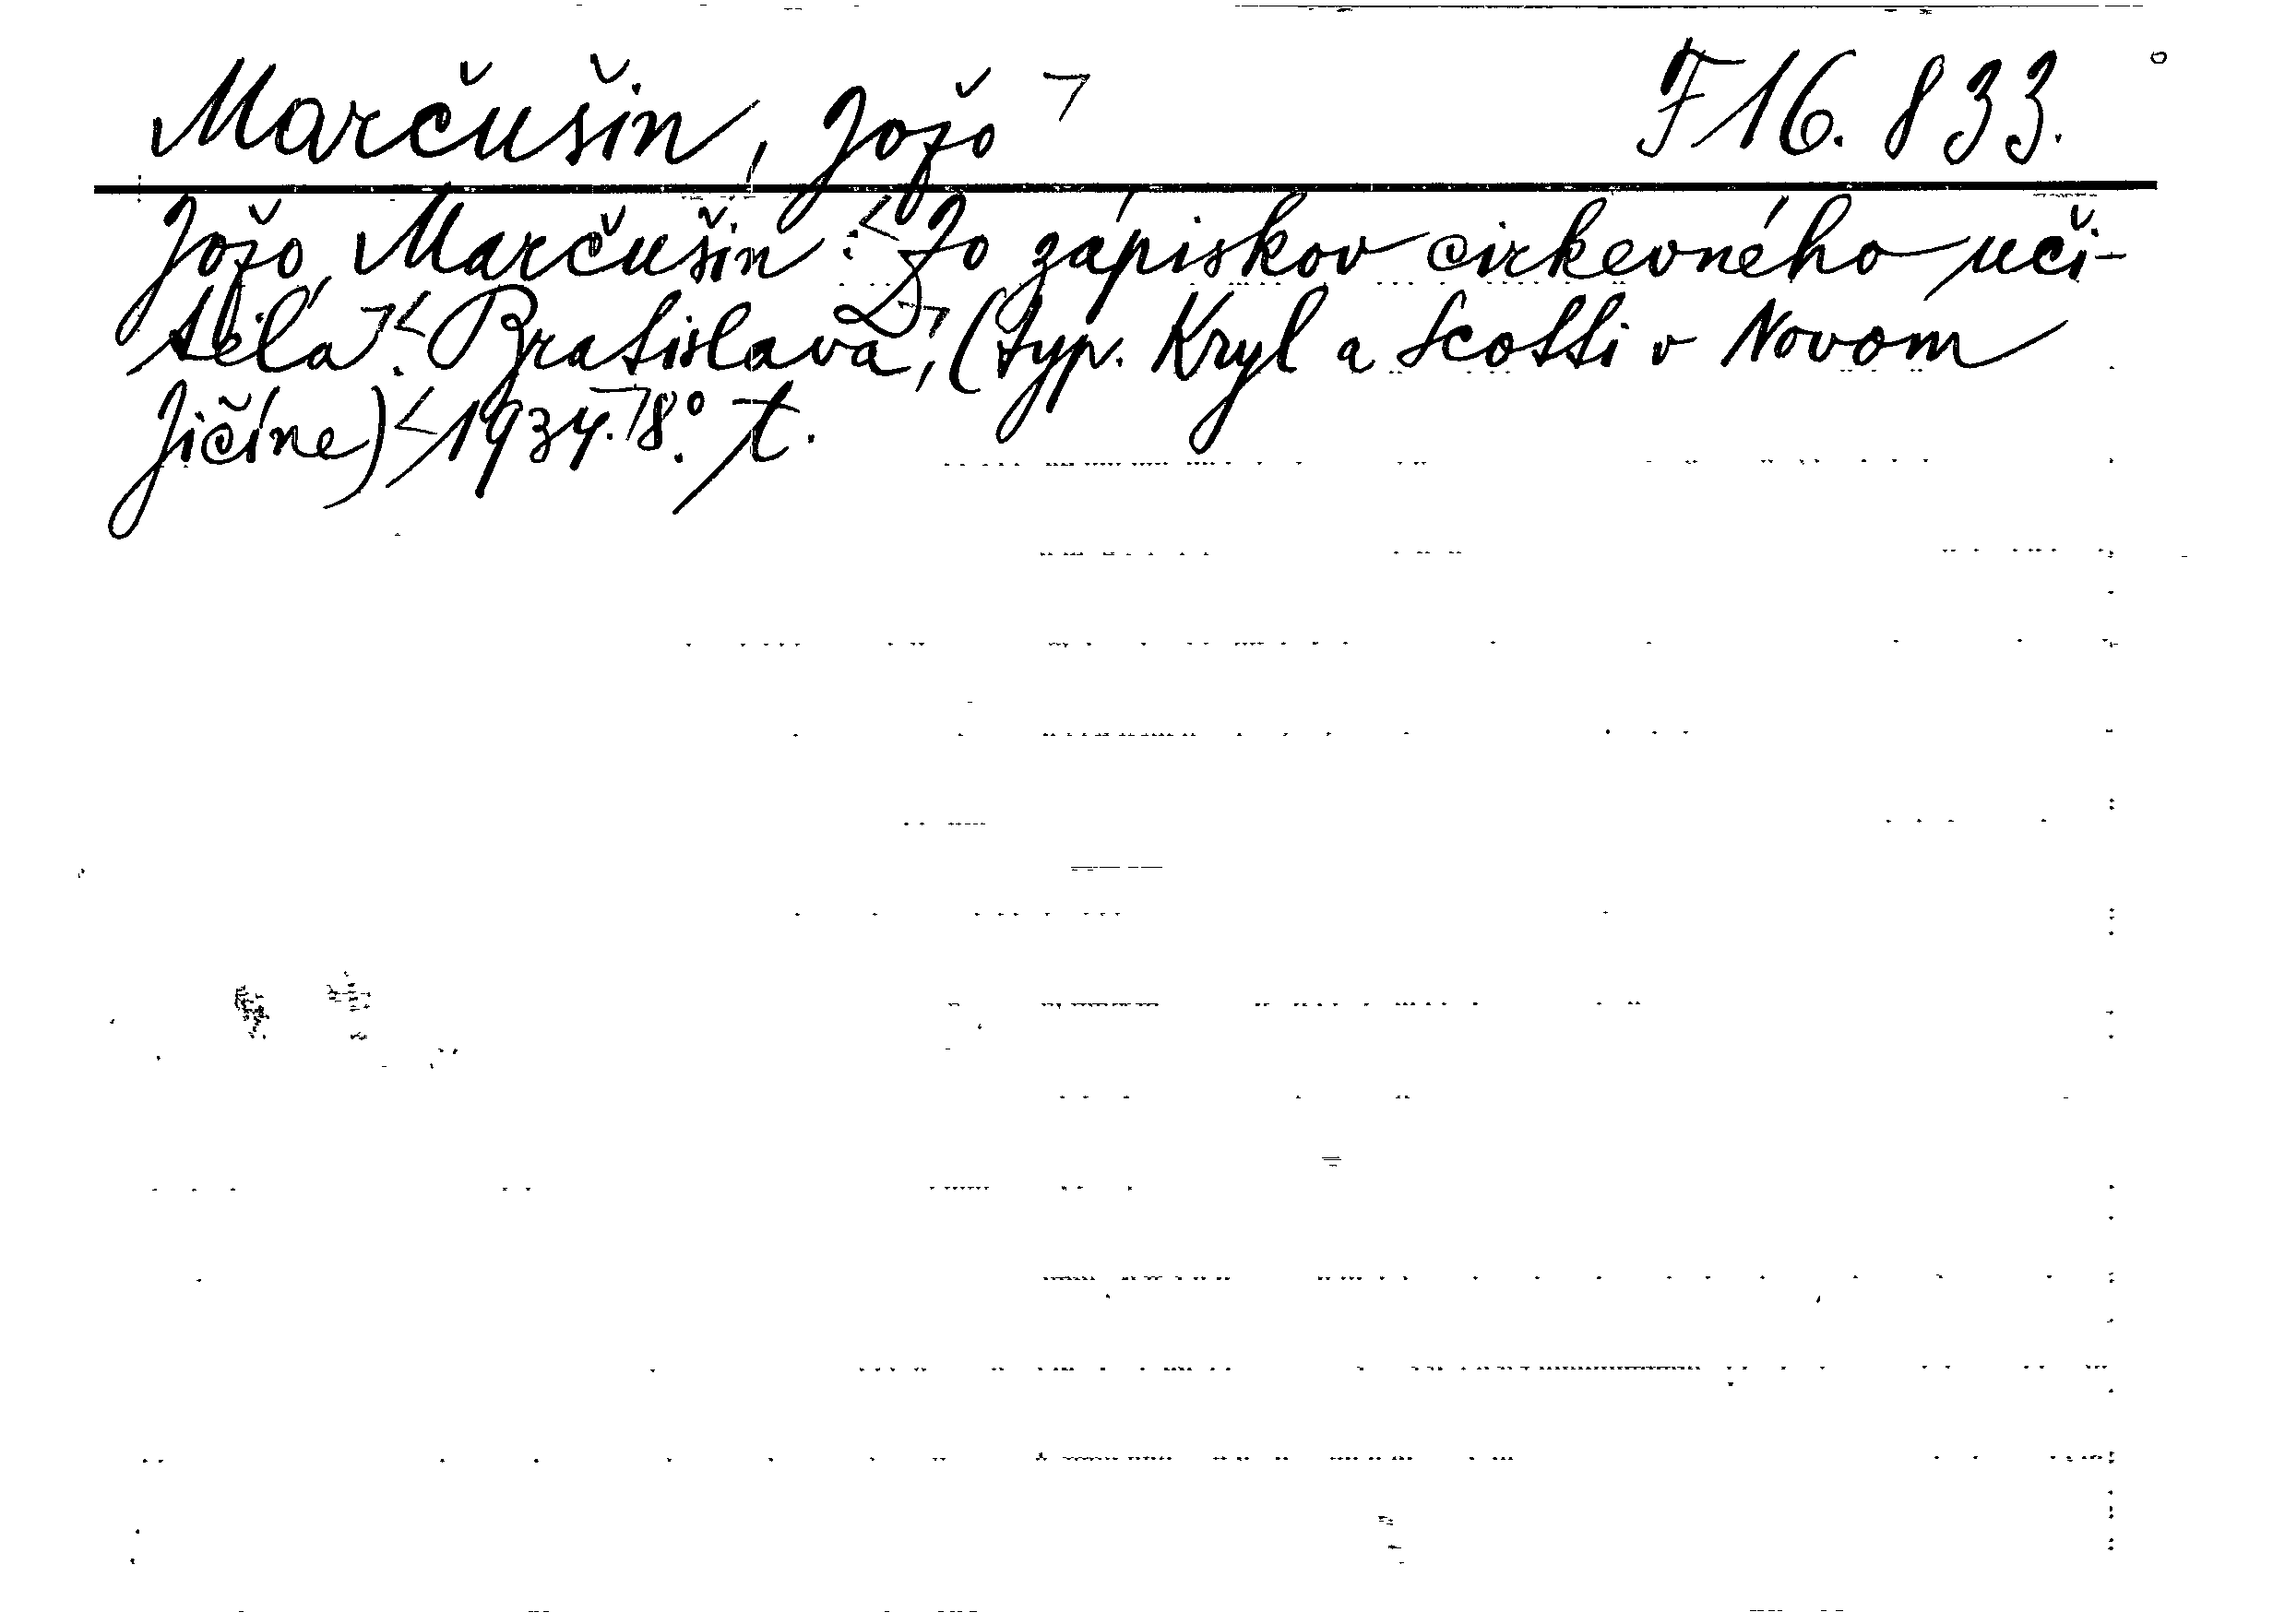 Marčušin, Jožo ㄱ F 16.833.
Jožo Marčušin: <Zo zápiskov cirkevného uči-
teľa.ㄱ <Bratislava,ㄱ (typ. Kryl a Scotti v Novom
Jičíne) <1934.ㄱ 8°. t.